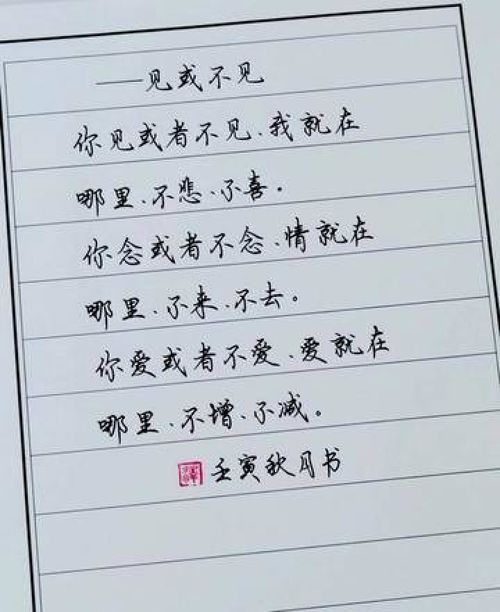 ——见或不见
你见或者不见、我就在
哪里、不悲、不喜。
你念或者不念、情就在
哪里、不来、不去。
你爱或者不爱、爱就在
哪里、不增、不减。
壬寅秋月书